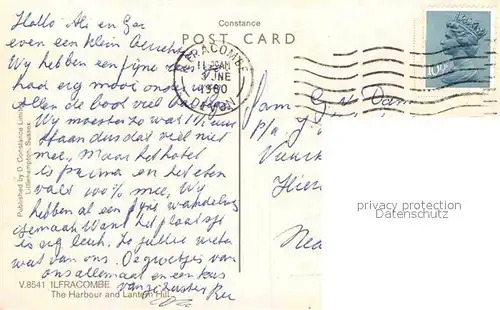 Constance
POST CARD
Hallo Ali en Ger
even een klein berichtje
Wy hebben een fyne reis
had erg mooi onder
Alleen de boot viel
Wy moesten zo wat 1½ uur
staan dus dat viel niet
mee, maar het hotel
is prima en het eten
valt 100% mee, Wy
hebben al een fyne wandeling
gemaakt Want het plaatsje
is erg leuk, zo jullie weten
wat van ons. De groetjes van
ons allemaal en een kus
van je zuster
ILFRACOMBE
DEVON
11 15AM
JNE
1980
Fam
G.
p/a
Hier
Ned
privacy protection
DatasafeCard
Published by D. Constance Limited
Littlehampton, Sussex
V.8541 ILFRACOMBE
The Harbour and Lantern Hill